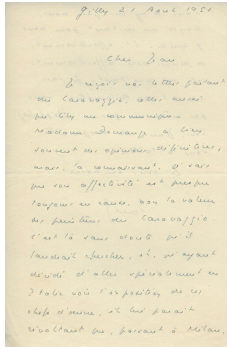 Gilly 21 Août 1951
Cher Jean
Je reçois vos lettres parlant
du Caravaggio, celles aussi
que m'a communiquées
Madame a bien
souvent des opinions définitives,
mais, la connaissant, je sais
que son affectivité est presque
toujours en cause. Sur la valeur
des peintures du Caravaggio
c'est là sans doute qu'il
faudrait chercher, et, n'ayant
décidé d'aller spécialement en
Italie voir l'exposition de ces
chefs d'œuvre, il lui paraît
révoltant que, passant à Milan,